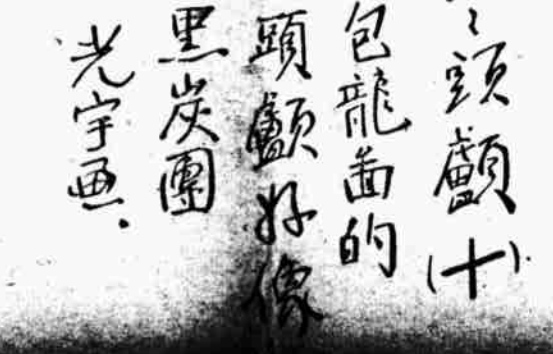 頭顱(十)
包龍面的
頭顱好像
黑炭團
光宇画.